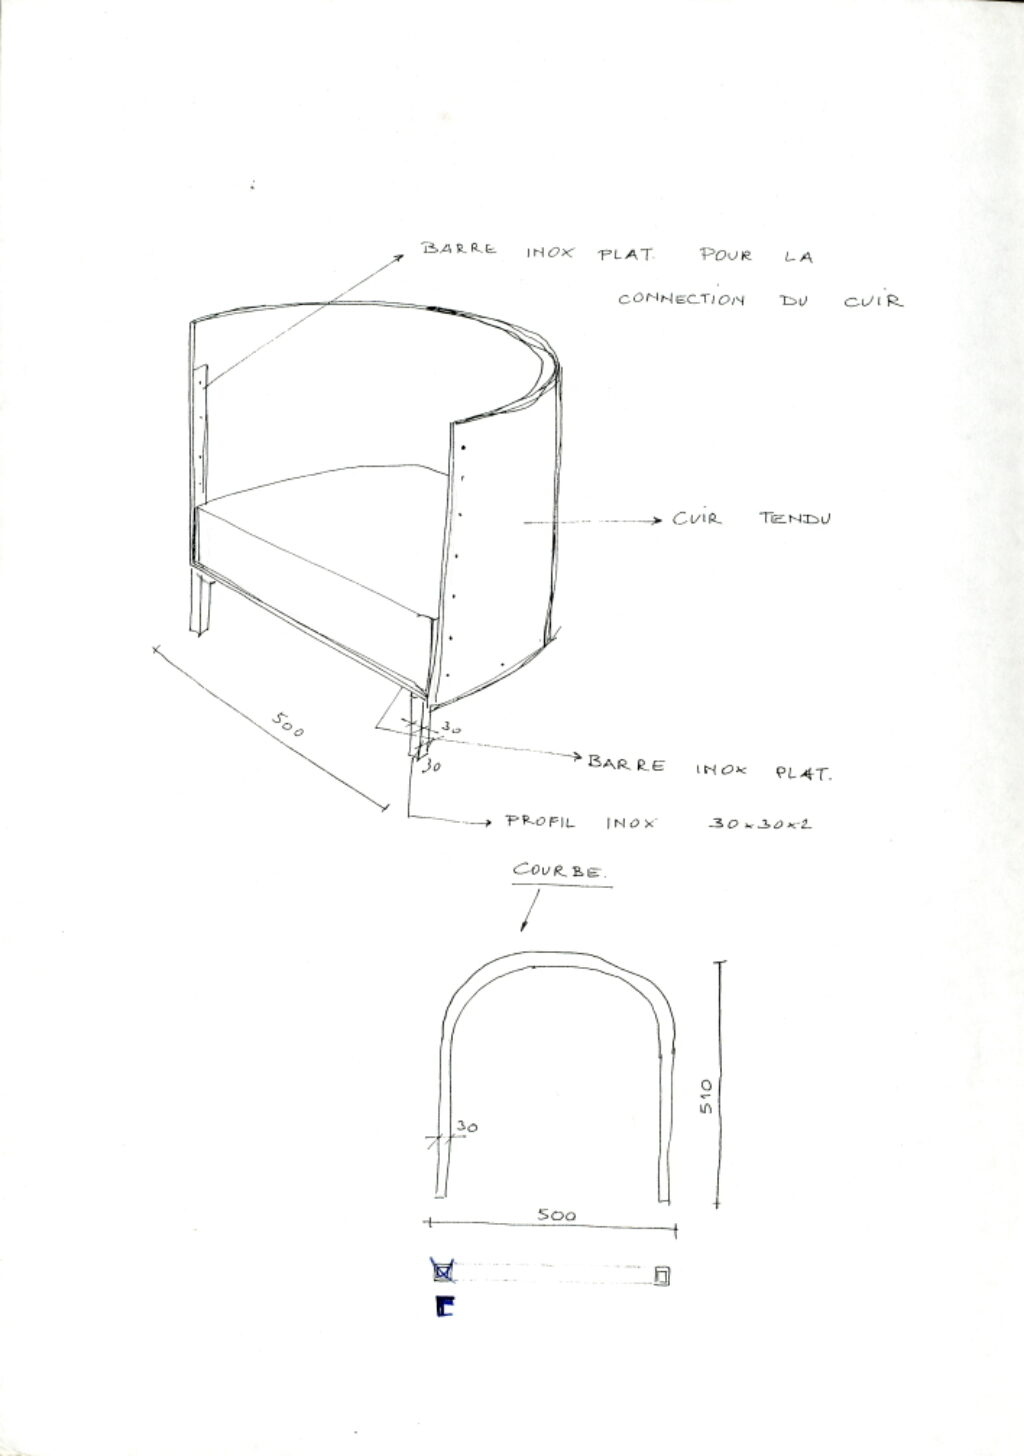 BARRE INOX PLAT. POUR LA
CONNECTION DU CUIR
CUIR TENDU
500
30
30
BARRE INOX PLAT.
PROFIL INOX 30x30x2
COURBE.
510
30
500